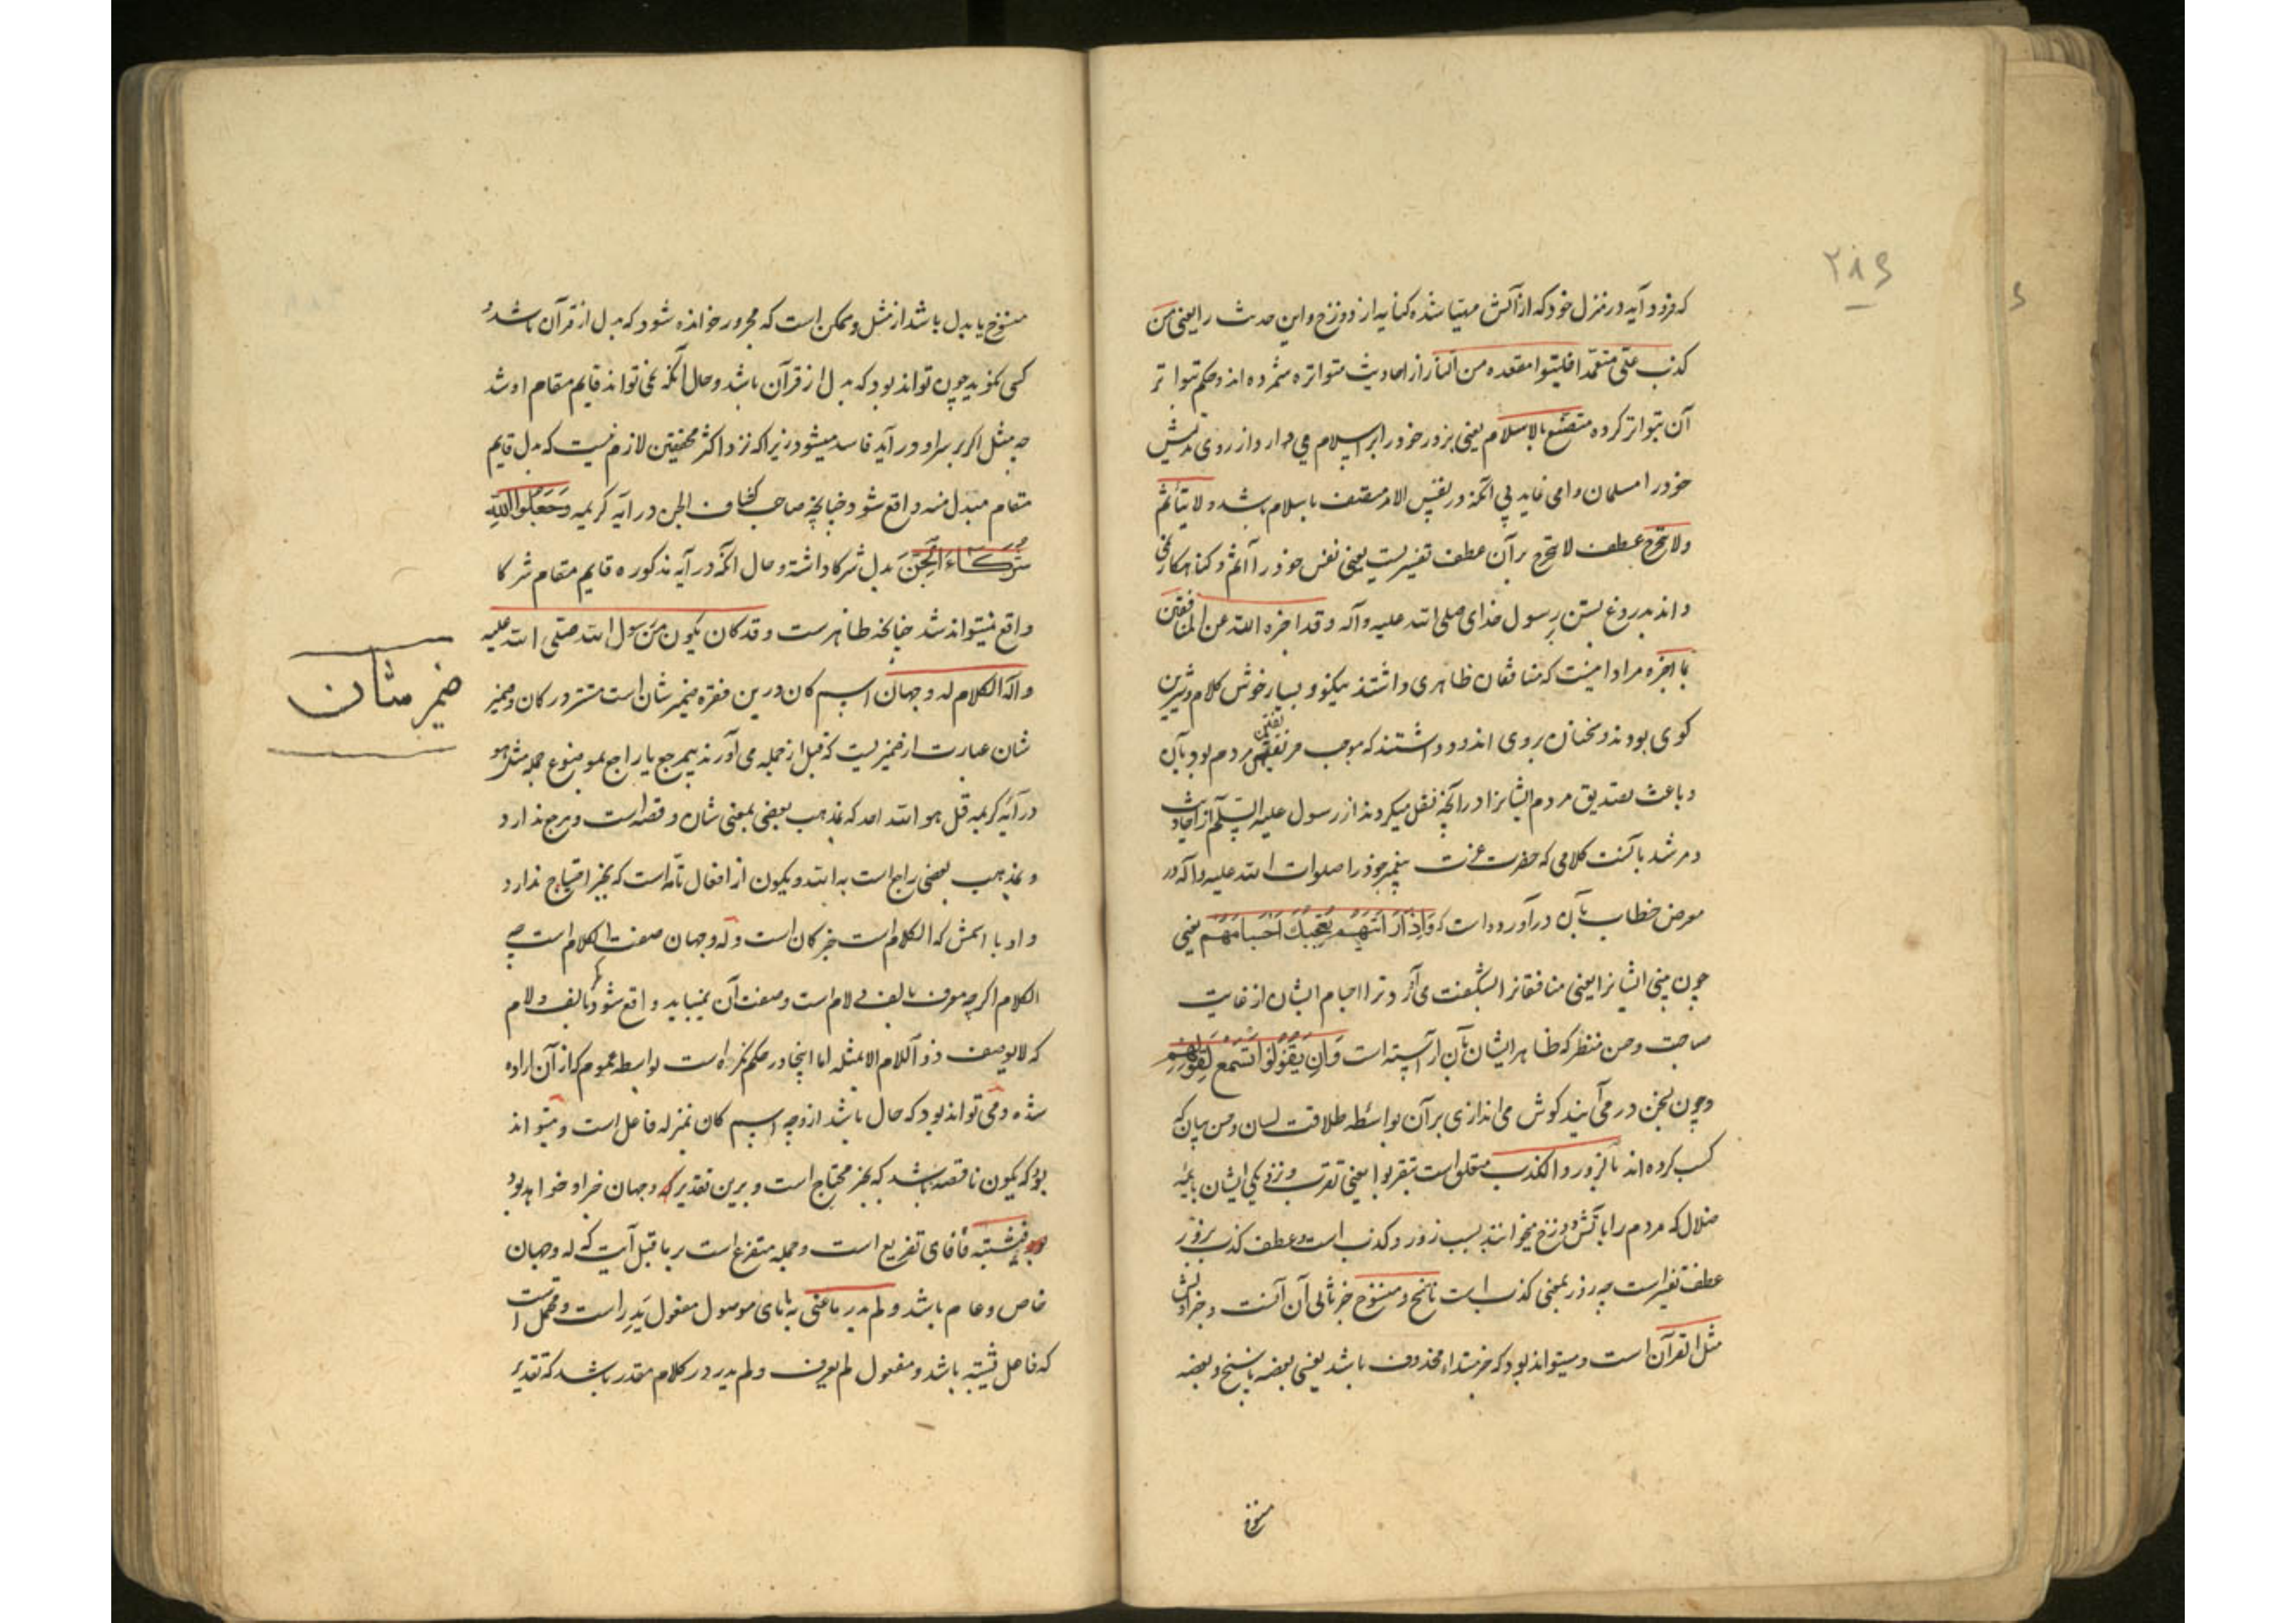 ۲۸۶
که فرود آید در منزل خود که از آتش مهیا شده کنایه از دوزخ و این حدیث را یعنی من
کذب علی متعمدا فلیتبوا مقعده من النار از احادیث متواتره شمرده اند و حکم بتواتر
آن بتواتر کرده متصنع بالاسلام یعنی بزور خود را بر اسلام می دارد و از روی تدلیس
خود را مسلمان وامی نماید بی آنکه در نفس الامر متصف باسلام باشد و لا یتأثم
ولا یتحرج عطف لا یتحرج بر آن عطف تفسیریست یعنی نفس خود را آثم و کناهکار نمی
داند بدروغ بستن برسول خدای صلی الله علیه وآله وقد اخبره الله عن المنافقین
بما اخبره مراد اینست که منافقان ظاهری داشتند نیکو و بسیار خوش کلام و شیرین
کوی بودند و سخنان روی اندود داشتند که موجب مردم بود بآن
و باعث تصدیق مردم ایشانرا در آنچه نقل میکردند از رسول علیه السلام از احادیث
و مرشد باینست کلامی که حضرت عزت پیغمبر خود را صلوات الله علیه وآله در
معرض خطاب بآن درآورده است که وَاِذَا رَاَیْتَهُمْ تُعْجِبُكَ اَجْسَامُهُمْ یعنی
چون بینی ایشانرا یعنی منافقانرا بشکفت می آرد ترا اجسام ایشان از غایت
صباحت و حسن منظر که ظاهر ایشان بآن آراسته است وَاِنْ یَقُولُوا تَسْمَعْ لِقَوْلِهِمْ
و چون بسخن در می آیند کوش می اندازی بر آن بواسطه طلاقت لسان و حسن بیان که
کسب کرده اند بالزور والکذب متعلق است بتقربوا یعنی تقرب و نزدیکی ایشان بائمه
ضلال که مردم را بآتش دوزخ میخوانند بسبب زور و کذب است و عطف کذب بر زور
عطف تفسیر است چه زور بمعنی کذب است ناسخ و منسوخ خبر ثانی آن آنست و خبر اولش
مثل القرآن است و میتواند بود که خبر مبتداء محذوف باشد یعنی بعضه ناسخ و بعضه
منسوخ
منسوخ یا بدل باشد از مثل و ممکن است که مجرور خوانده شود که بدل از قرآن باشد و
کسی نگوید چون تواند بود که بدل از قرآن باشد و حال آنکه نمی تواند قایم مقام او شد
چه مثل اکر بر سر او در آید فاسد میشود زیرا که نزد اکثر محققین لازم نیست که بدل قایم
مقام مبدل منه واقع شود چنانچه صاحب کشاف الجن در آیه کریمه وَجَعَلُوا لِلّٰهِ
شُرَكَاءَ الْجِنَّ بدل شرکا داشته و حال آنکه در آیه مذکوره قایم مقام شرکا
واقع نمیتواند شد چنانچه ظاهرست وقد کان یکون من رسول الله صلی الله علیه
وآله الکلام له وجهان اسم کان درین فقره ضمیر شان است مستتر در کان و ضمیر
شان عبارت از ضمیریست که قبل از جمله می آورند بیمرجع یا راجع بموضوع جمله مثل هو
در آیه کریمه قل هو الله احد که بمذهب بعضی بمعنی شان و قصه است و مرجع ندارد
و بمذهب بعضی راجع است به الله و یکون از افعال تامه است که بخبر احتیاج ندارد
و او با اسمش که الکلام است خبر کان است و له وجهان صفت الکلام است چه
الکلام اکرچه معرف بالف و لام است و صفت آن نمیباید واقع شود مکر بالف و لام
که لا یوصف ذو اللام الا بمثله اما اینجا در حکم نکره است بواسطه عموم که از آن اراده
شده و می تواند بود که حال باشد از وجه اسم کان بمنزله فاعل است و میتواند
بود که یکون ناقصه باشد که بخبر محتاج است و برین تقدیر له وجهان خبر او خواهد بود
فیشتبه فا فای تفریع است و جمله متفرع است بر ما قبل آیت که له وجهان
خاص و عام باشد و لم یدر ما عنی به مای موصول مفعول یدر است و محتمل است
که فاعل یشتبه باشد و مفعول لم یعرف و لم یدر در کلام مقدر باشد که تقدیر
ضمیر شان